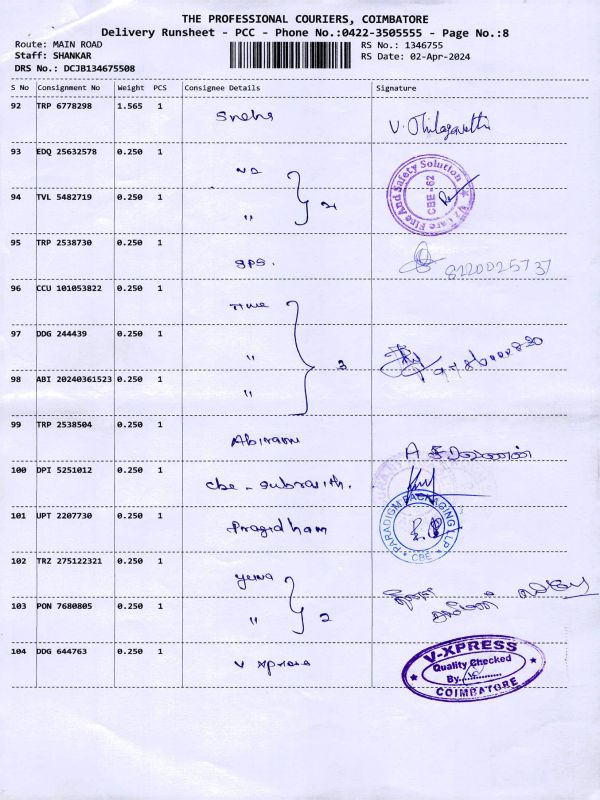 THE PROFESSIONAL COURIERS, COIMBATORE
Delivery Runsheet - PCC - Phone No.:0422-3505555 - Page No.:8
Route: MAIN ROAD RS No.: 1346755
Staff: SHANKAR RS Date: 02-Apr-2024
DRS No.: DCJB134675508
S No Consignment No Weight PCS Consignee Details Signature
92 TRP 6778298 1.565 1 Sneha V. Thilagavathi
93 EDQ 25632578 0.250 1
Fire And Safety Solution
CBE-62
94 TVL 5482719 0.250 1 "
95 TRP 2538730 0.250 1 gps. 8220025737
96 CCU 101053822 0.250 1 Time
97 DDG 244439 0.250 1 " 3
98 ABI 20240361523 0.250 1 "
99 TRP 2538504 0.250 1 Abirami
100 DPI 5251012 0.250 1 cbe
101 UPT 2207730 0.250 1 Pragidham
PARADIGM PACKAGING LLP
CBE
102 TRZ 275122321 0.250 1
103 PON 7680805 0.250 1 " 2
104 DDG 644763 0.250 1 V Xpress
V-XPRESS
Quality Checked
By
COIMBATORE